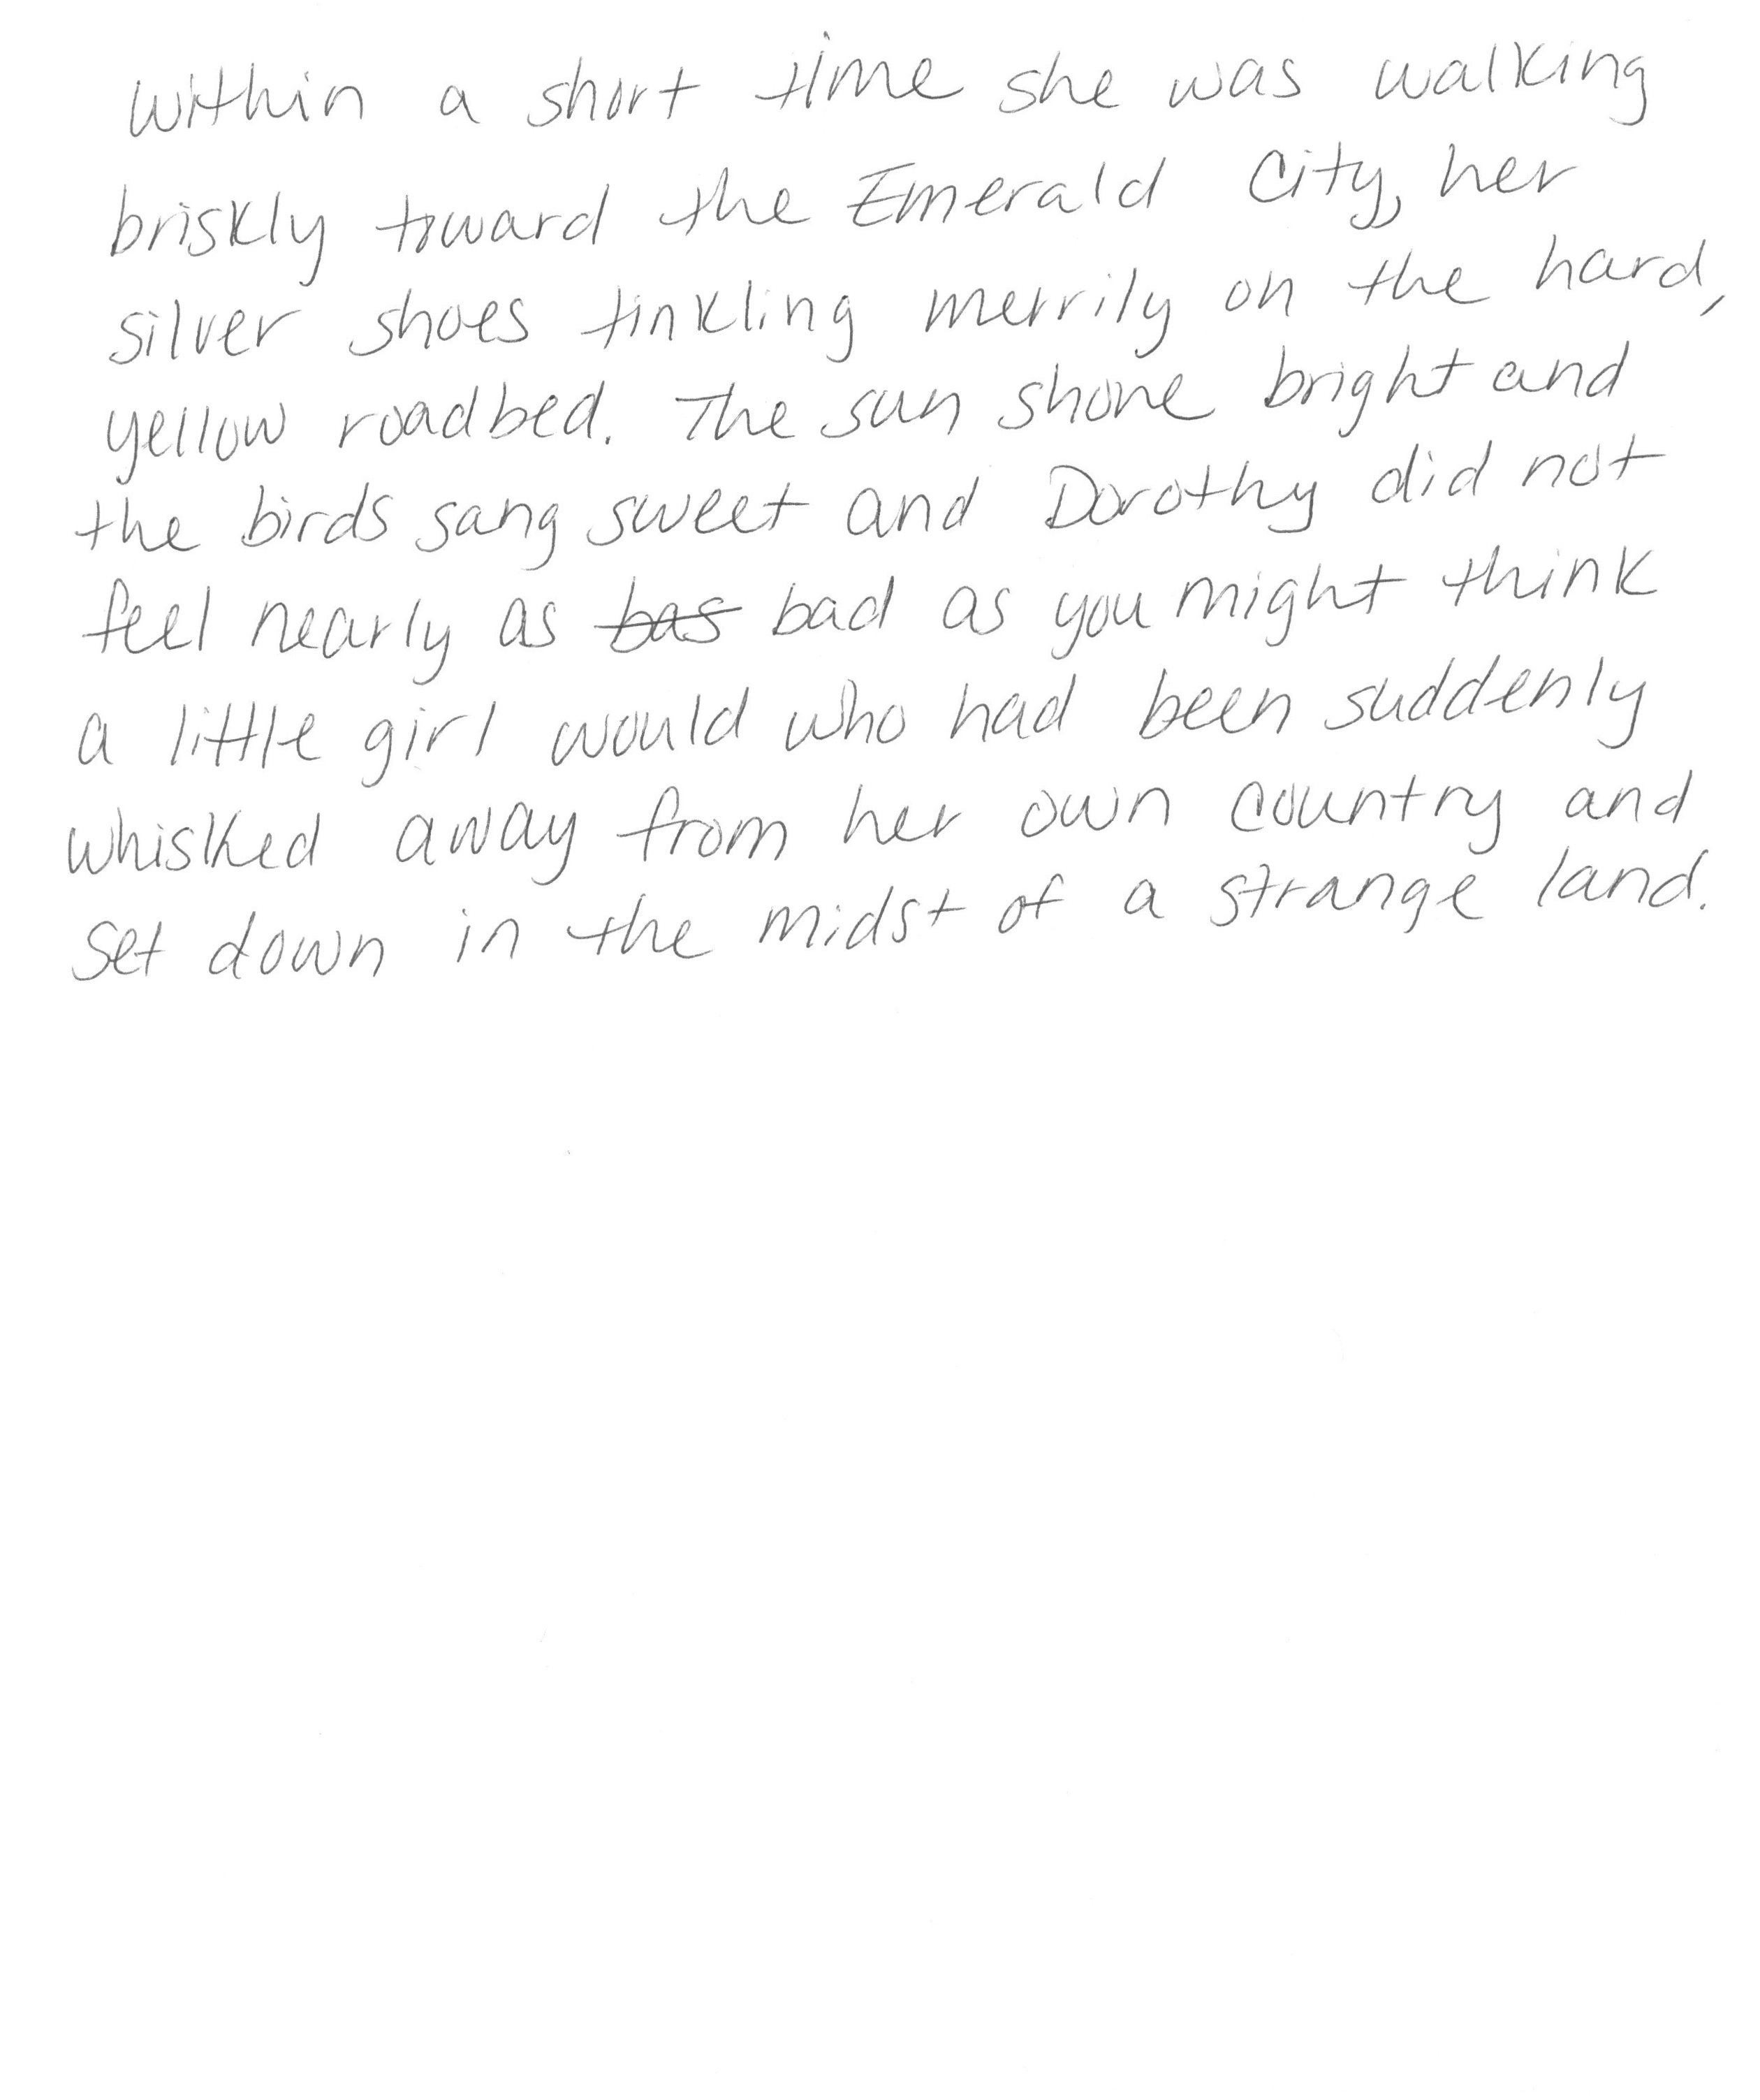 Within a short time she was walking
briskly toward the Emerald City, her
silver shoes tinkling merrily on the hard,
yellow roadbed. The sun shone bright and
the birds sang sweet and Dorothy did not
feel nearly as bas bad as you might think
a little girl would who had been suddenly
whisked away from her own country and
set down in the midst of a strange land.